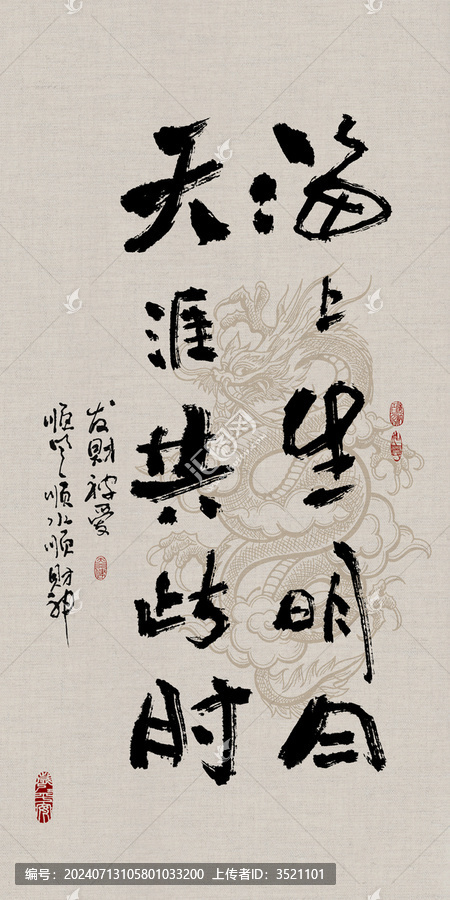 海上生明
天涯共此时
发财被爱
顺风顺水顺财神
编号：20240713105801033200 上传者ID：3521101